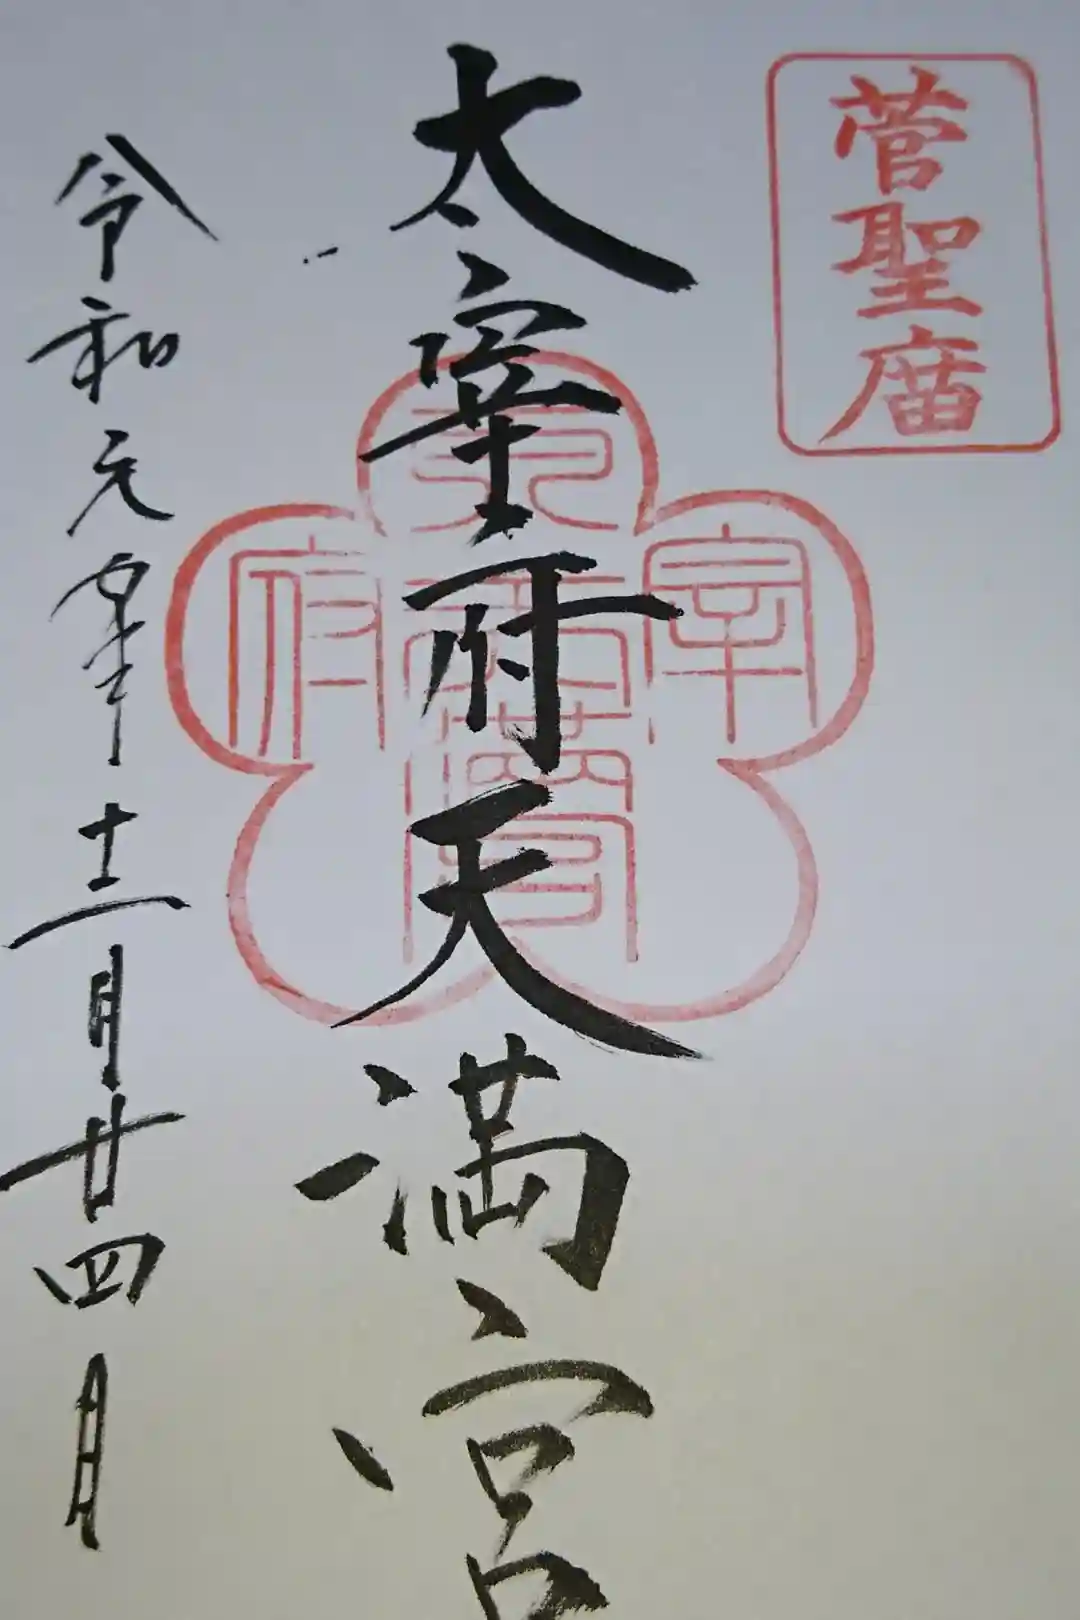 菅聖庿
太宰府天満宮
太
宰
府
天満宮
令和元年十二月廿四日